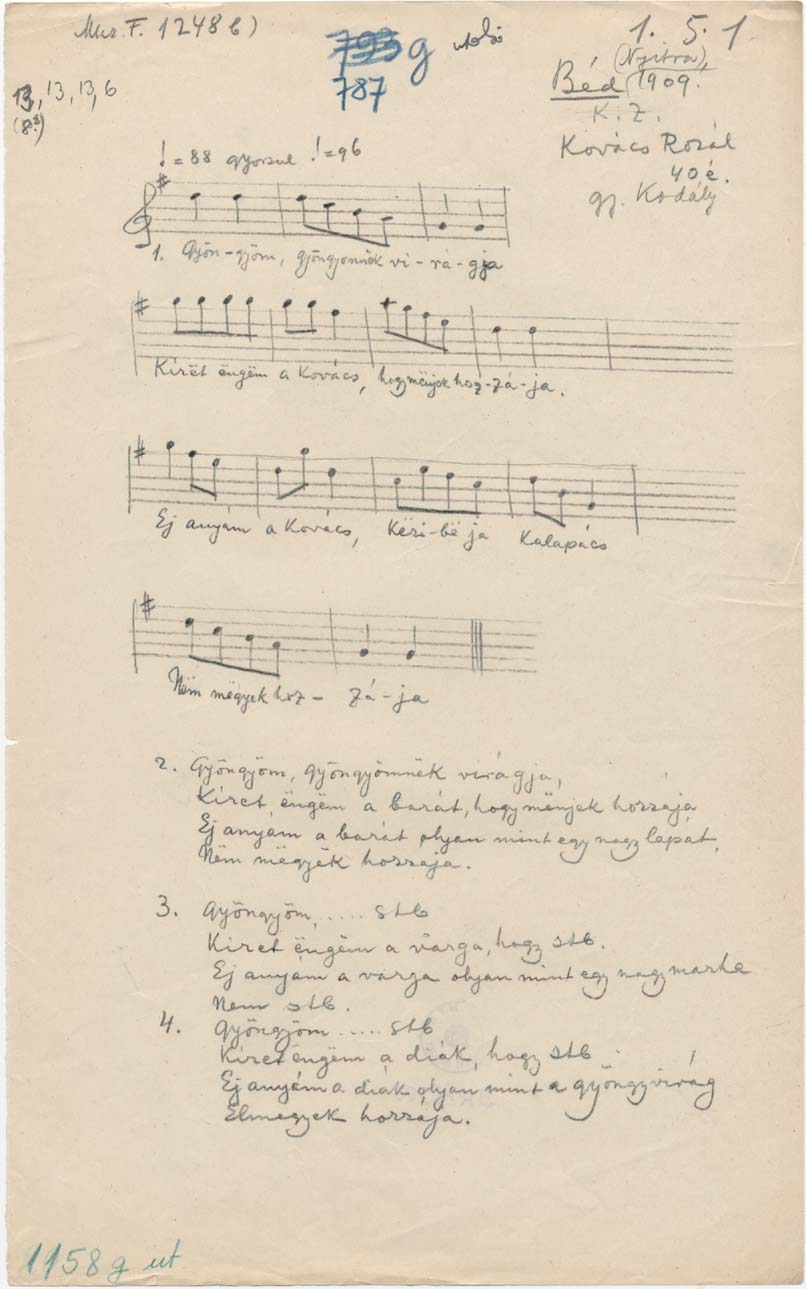 Mus. F. 1248 b)
793 g utolsó
787
1. 5. 1
(Nyitra),
Béd, 1909.
K. Z.
Kovács Rozál
40 é.
gy. Kodály
13, 13, 13, 6
(8?)
= 88 gyorsul = 96
1. Gyön-gyöm, gyöngyömnek vi-rá-gja
Kíret ëngëm a Kovács, hogy mënjek hoz-zá-ja.
Ej anyám a Kovács, Këzi-bë ja Kalapács
Nëm mëgyek hoz- zá-ja
2. Gyöngyöm, gyöngyömnek virágja,
Kíret ëngëm a barát, hogy mënjek hozzája
Ej anyám a barát olyan mint egy nagy lapát,
Nëm mëgyëk hozzája.
3. Gyöngyöm, ..... stb
Kíret ëngëm a varga, hogy stb.
Ej anyám a varga olyan mint egy nagy marha
Nem stb.
4. Gyöngyöm ..... stb
Kíret ëngëm a diák, hogy stb.
Ej anyám a diák olyan mint a gyöngyvirág
Elmegyek hozzája.
1158 g ut